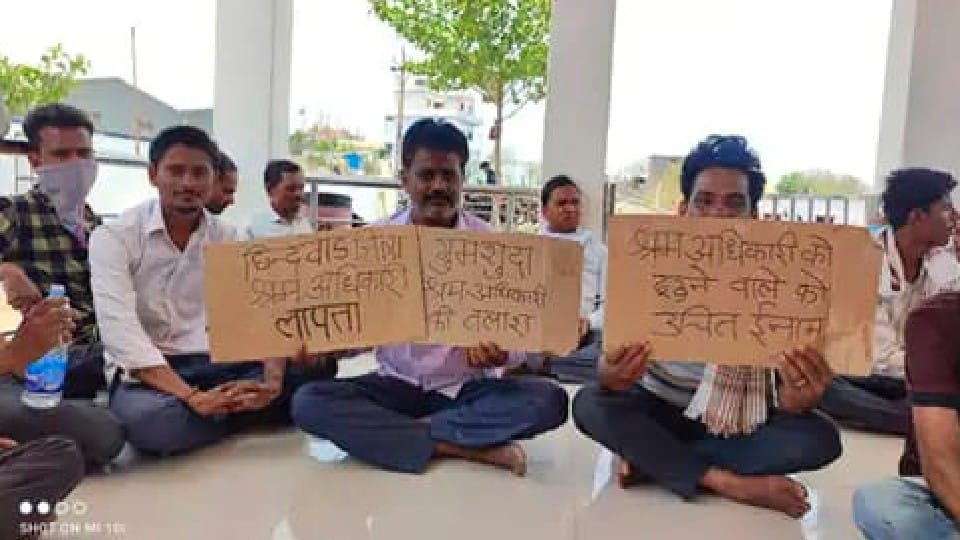 छिन्दवाडा जिला
श्रम अधिकारी
लापता
गुमशुदा
श्रम-अधिकारी
की तलाश
श्रम अधिकारी को
ढूढने वाले को
उचित ईनाम
SHOT ON MI 10i